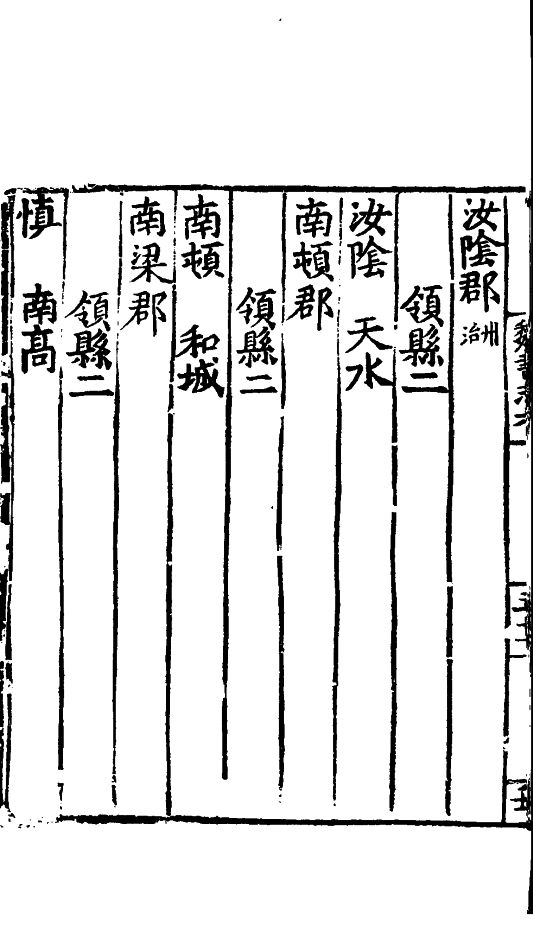 汝陰郡州治
領縣二
汝陰　天水
南頓郡
領縣二
南頓　和城
南梁郡
領縣二
慎　南高